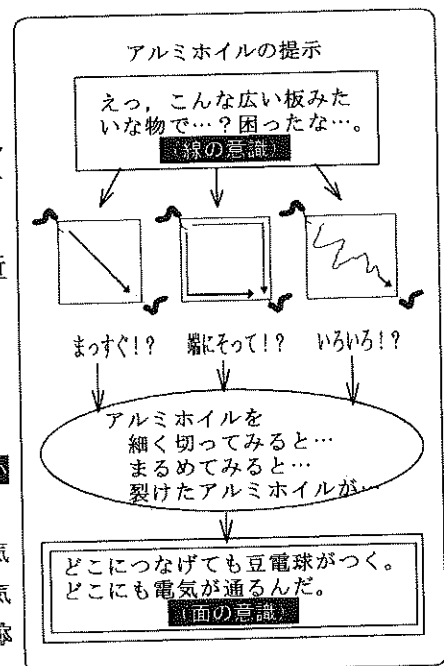 アルミホイルの提示
えっ，こんな広い板みた
いな物で…？困ったな…。
(線の意識)
まっすぐ！？ 端にそって！？ いろいろ！？
アルミホイルを
細く切ってみると…
まるめてみると…
裂けたアルミホイルが…
どこにつなげても豆電球がつく。
どこにも電気が通るんだ。
(面の意識)